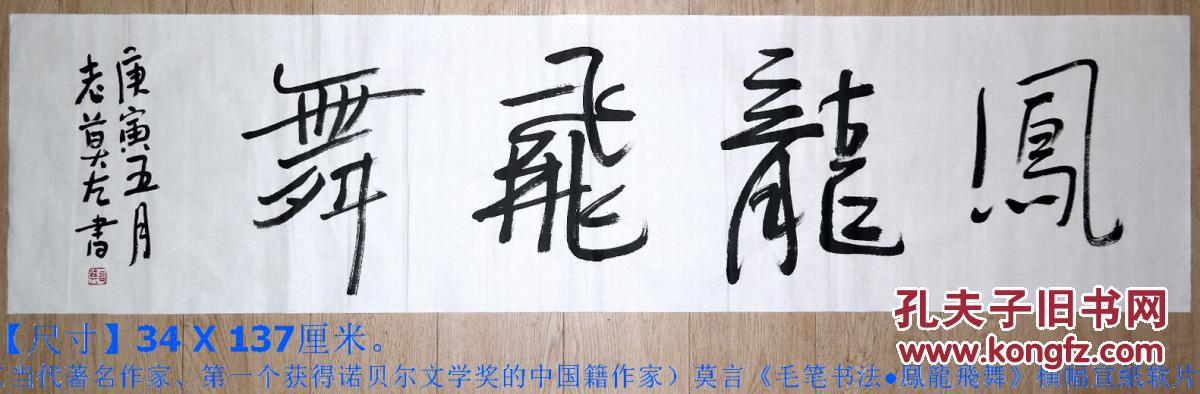 鳳龍飛舞
庚寅五月
志莫左書
孔夫子旧书网
www.kongfz.com
【尺寸】34 X 137厘米。
（当代著名作家、第一个获得诺贝尔文学奖的中国籍作家）莫言《毛笔书法●鳳龍飛舞》横幅宣紙软片